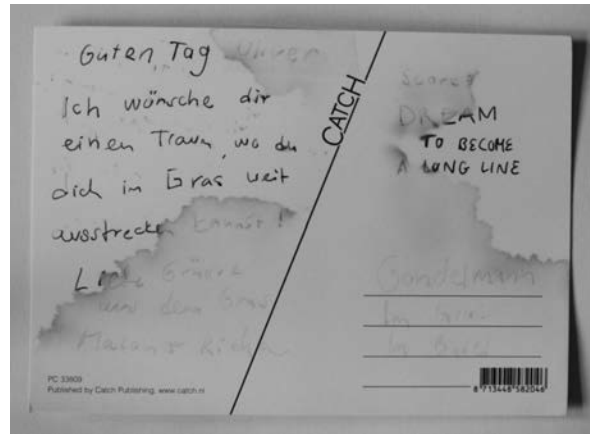 Guten Tag
Ich wünsche dir
einen Traum, wo du
dich in Gras weit
ausstrecken kannst!
Liebe Grüsse
aus dem Gras
CATCH
Score:
DREAM
TO BECOME
A LONG LINE
Im Gras
PC 33609
Published by Catch Publishing, www.catch.nl
8 713448 582046